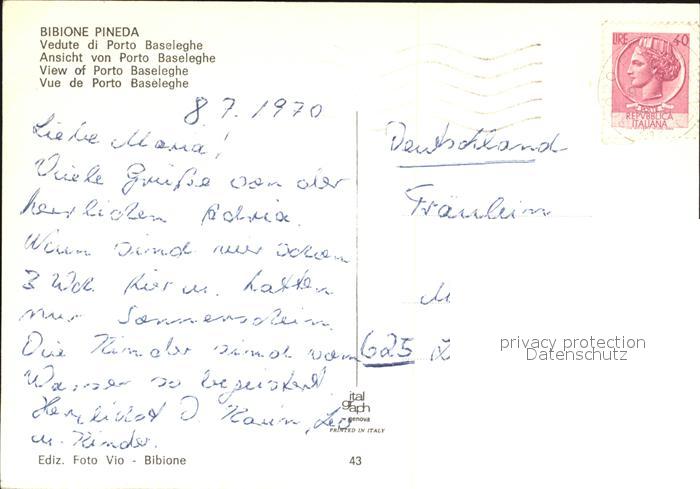 BIBIONE PINEDA
Vedute di Porto Baseleghe
Ansicht von Porto Baseleghe
View of Porto Baseleghe
Vue de Porto Baseleghe
8 7. 1970
Liebe Maria!
Viele Grüße von der
herrlichen Adria.
sind wir schon
3 Wch. hier u. hatten
nur Sonnenschein.
Die Kinder sind vom
Wasser so begeistert.
Herzlichst
u. Kinder.
Ediz. Foto Vio - Bibione
43
ital
graph
genova
PRINTED IN ITALY
LIRE 40
POSTE
REPVBBLICA
ITALIANA
Deutschland
Fräulein
M
625
privacy protection
Datenschutz